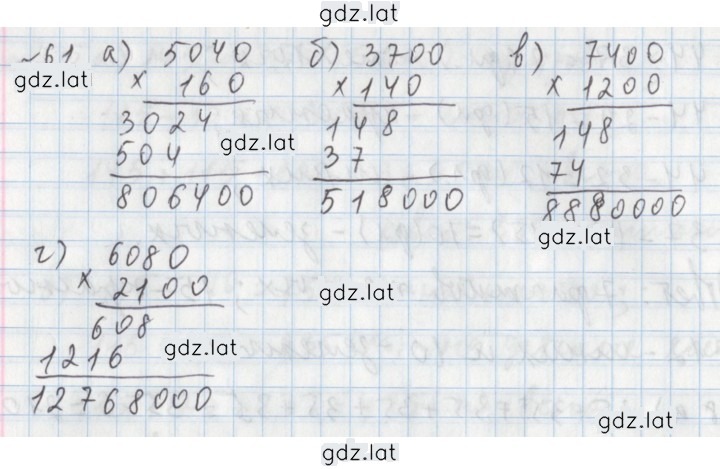 gdz.lat
№61 а) 5040 б) 3700 в) 7400
gdz.lat × 160 × 140 × 1200
3024 148 148
504 gdz.lat 37 74
806400 518000 8880000
gdz.lat
г) 6080
× 2100 gdz.lat
608
1216 gdz.lat
12768000
gdz.lat
gdz.lat